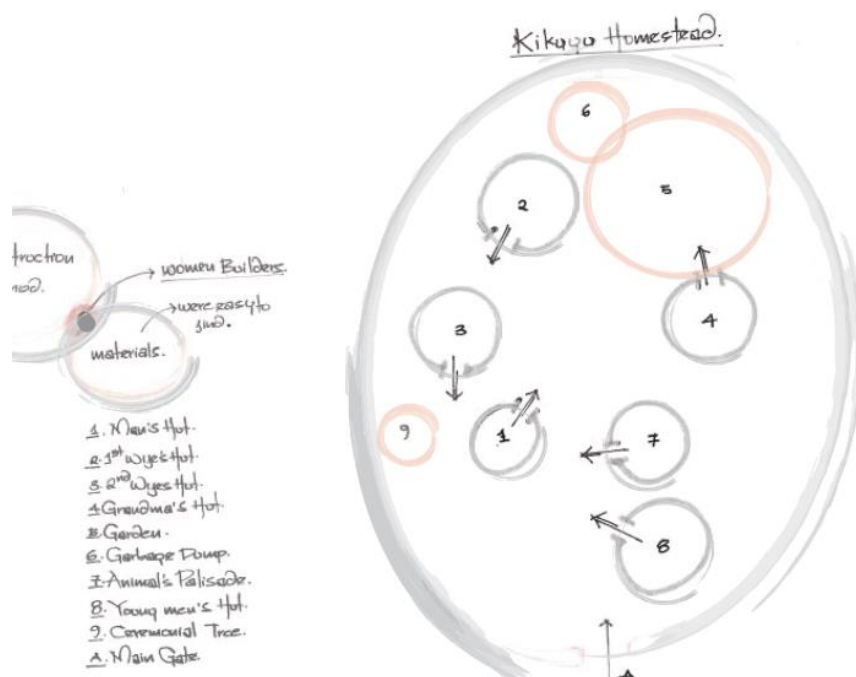 Kikuyu Homestead.
6
5
2
truction
women Builders.
were easy to
find.
materials.
3
4
9
1
7
8
1. Man's Hut.
2. 1st Wife's Hut.
3. 2nd Wifes Hut.
4 Grandma's Hut.
5. Garden.
6. Garbage Dump.
7. Animal's Palisade.
8. Young men's Hut.
9. Ceremonial Tree.
A. Main Gate
A